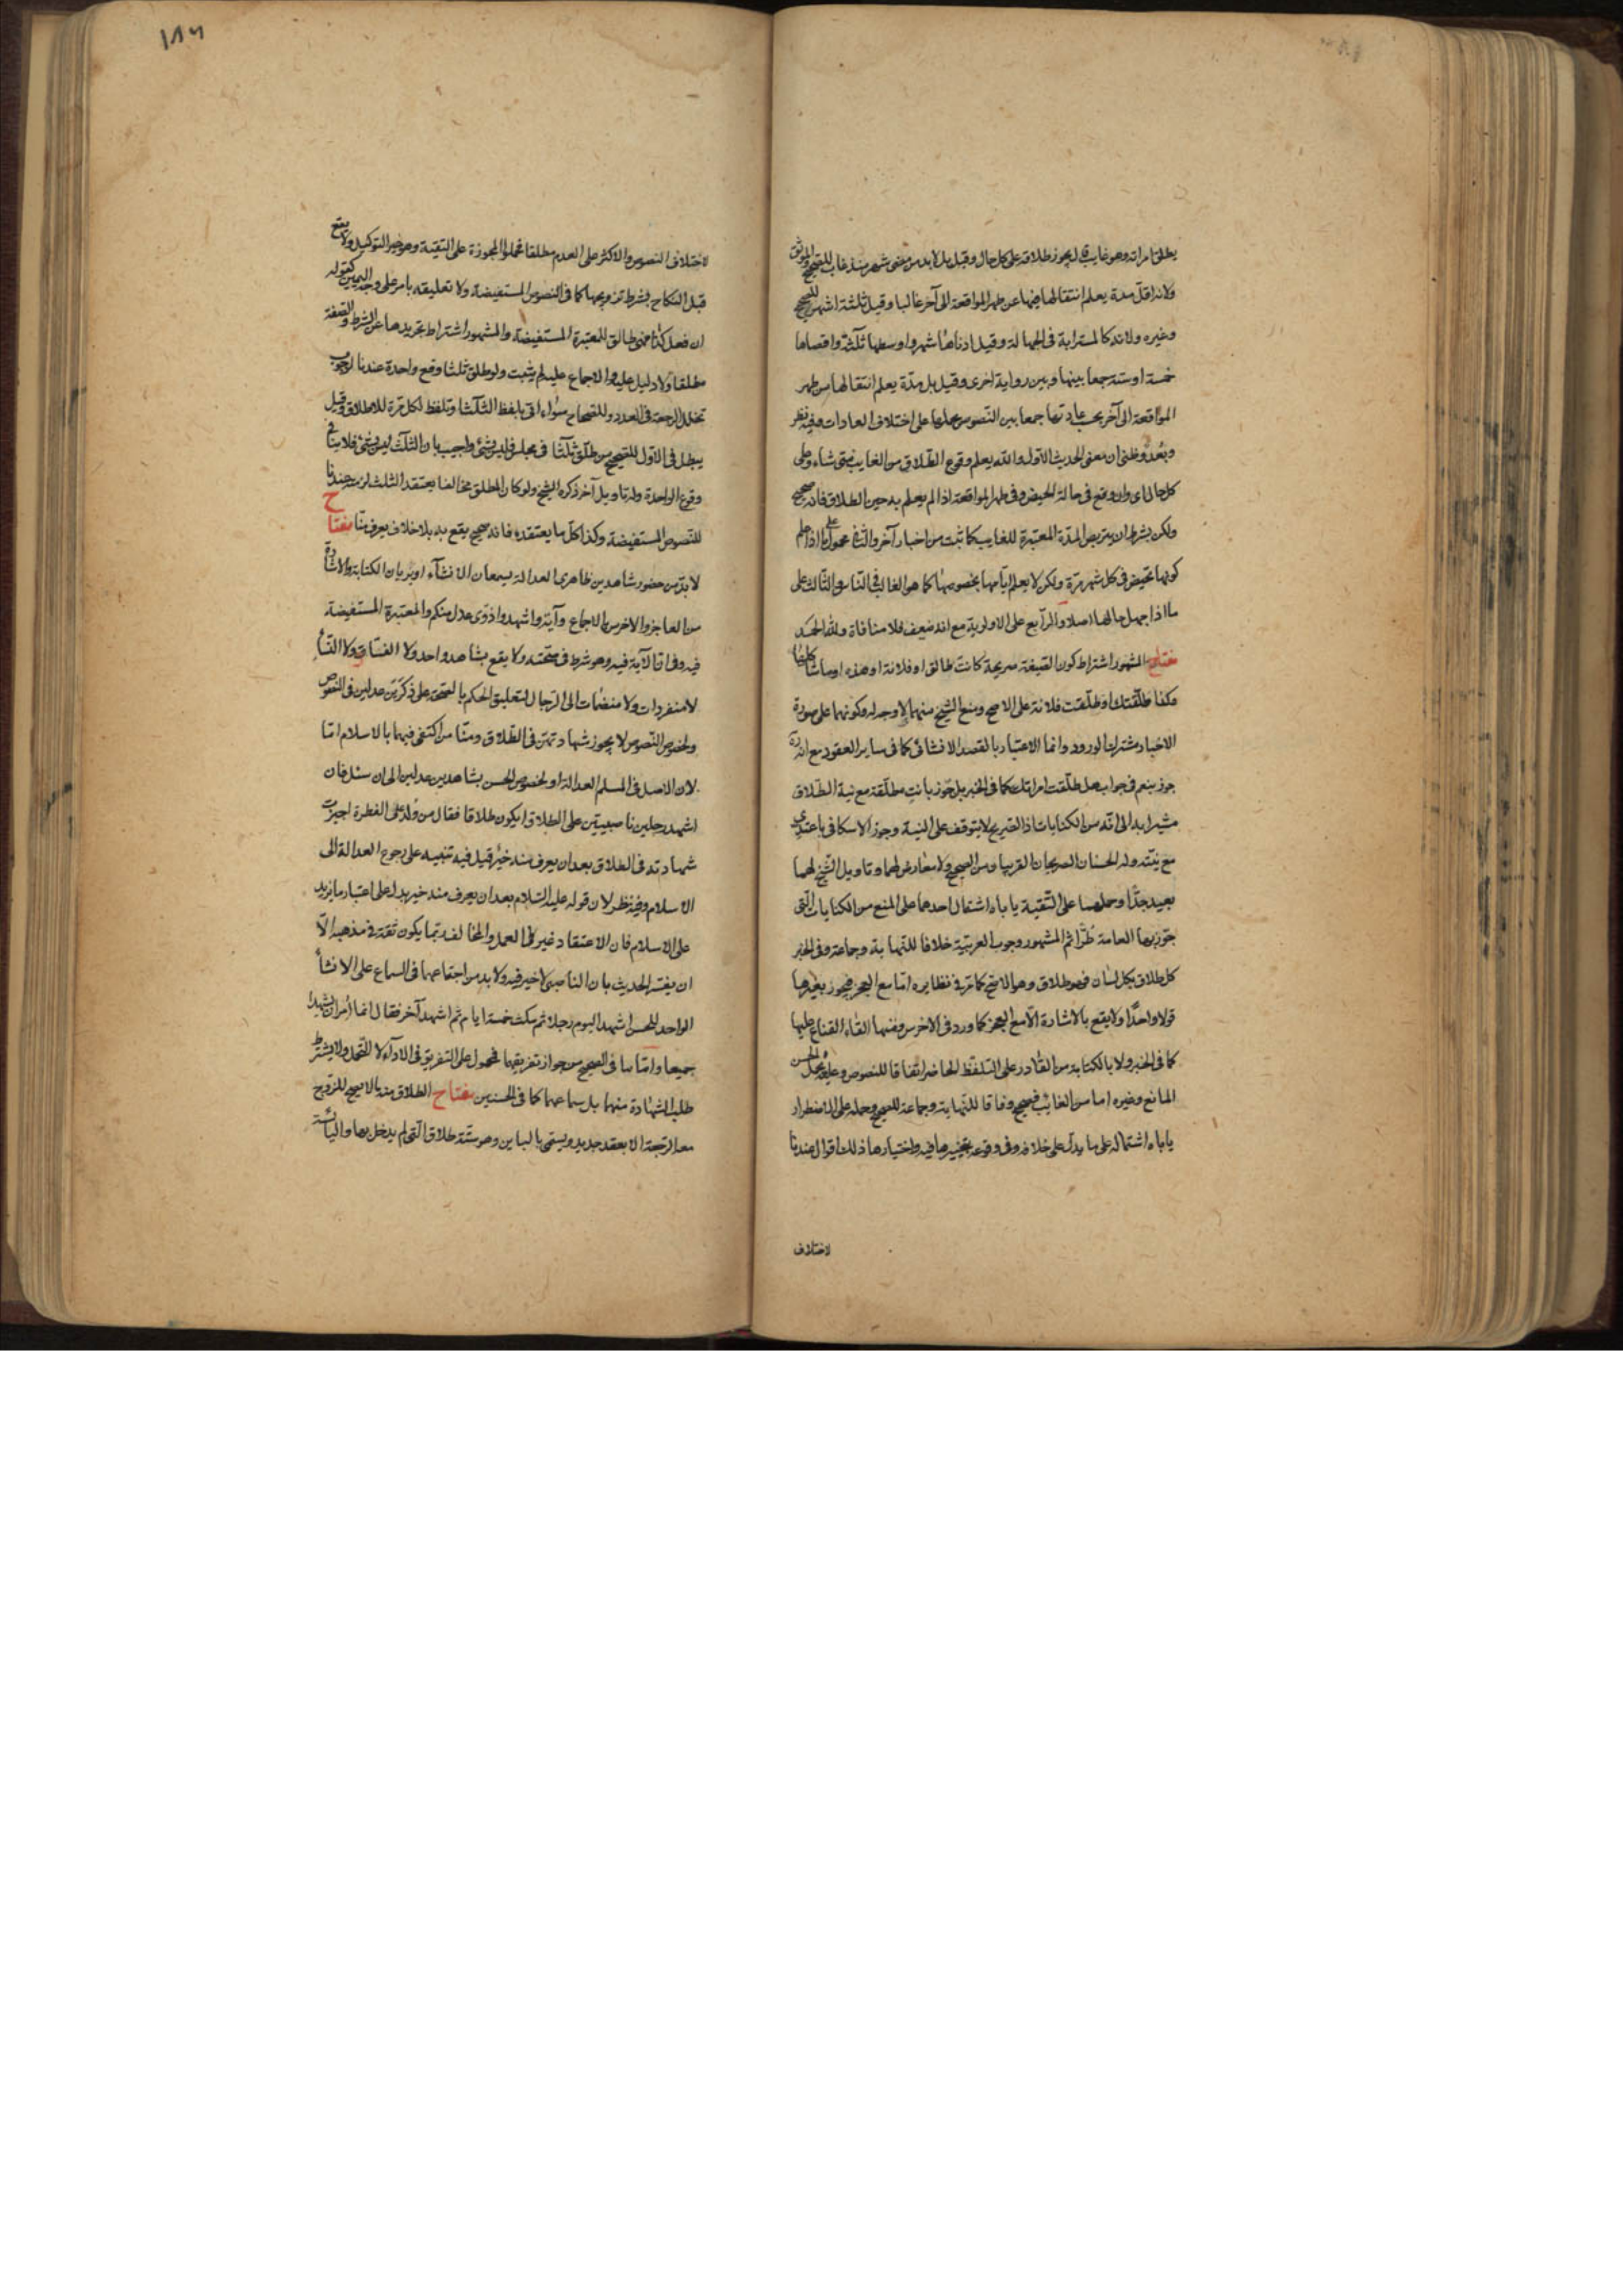 يطلق امراته وهو غايب قال يجوز طلاقه على كل حال وقيل بل لابد من مضى شهر منذ غاب للصحيح والموثق
ولانه اقل مدة يعلم انتقالها فيها عن طهر المواقعة الى آخر غالبا وقيل ثلثة اشهر للصحيح
وغيره ولانه كالمسترابة فى الجهالة وقيل ادناها شهر واوسطها ثلثة واقصاها
خمسة اوستة جمعا بينها وبين رواية اخرى وقيل بل مدّة يعلم انتقالها من طهر
المواقعة الى آخر بحسب عادتها جمعا بين النصوص بحملها على اختلاف العادات وفيه نظر
وبُعْد وظنى ان معنى الحديث الاول والله يعلم وقوع الطلاق من الغايب متى شاء وعلى
كل حال اى وان وقع فى حالة الحيض وفى طهر المواقعة اذا لم يعلم به حين الطلاق فانه صحيح
ولكن بشرط ان يتربص المدّة المعتبرة للغايب كما ثبت من اخبار آخر والثانى محمول على ما اذا علم
كونها تحيض فى كل شهر مرّة ولكن لا يعلم ايّامها بخصوصها كما هو الغالب فى الناس والثالث على
ما اذا جهل حالها اصلا والرابع على الاولوية مع انه ضعيف فلا منافاة ولله الحمد
مفتاح المشهور اشتراط كون الصيغة صريحة كانت طالق او فلانة او هذه او ما شاكلها
وكذا طلّقتك او طلّقت فلانة على الاصح ومنع الشيخ منهما لا وجه له وكونهما على صورة
الاخبار مشترك الورود وانما الاعتبار بالقصد الانشائى كما فى ساير العقود مع انّه
جوز بنعم فى جواب هل طلّقت امراتك كما فى الخبر بل جوّز بانت مطلّقة مع نية الطلاق
مشيرا بدا الى انّه من الكنايات اذا الصريح لا يتوقف على النية وجوز الاسكافى باعتدى
مع نيّته وله الحسنان الصريحان القريبا ومن الصحيح ولا معارض لهما وتاويل الشيخ لهما
بعيد جدًّا وحملهما على التقية ياباه اشتمال احدهما على المنع من الكنايات التى
جوّزها العامة طُرًّا ثم المشهور وجوب العربيّة خلافا للنهاية وجماعة وفى الخبر
كل طلاق بكل لسان فهو طلاق وهو الاصح كما مرّ فى نظايره امّا مع العجز فيجوز بغيرها
قولا واحدًا ولا يقع بالاشارة الّا مع العجز كما ورد فى الاخرس ومنها القاء القناع عليها
كما فى الخبر ولا بالكتابة من القادر على التلفّظ الحاضر اتفاقا للنصوص وعليه يُحمل الحسن
المانع وغيره اما من الغائب فصحيح وفاقا للنّهاية وجماعة للصحيح وحمله على الاضطرار
ياباه اشتماله على ما يدل على خلافه وفى وقوعه بتخييرها فيه واختيارها ذلك اقوال عندنا
لاختلاف
١٨٦
لاختلاف النصوص والاكثر على العدم مطلقا فحملوا المجوزة على التقية وهو خير التوكيل ولا يقع
قبل النكاح بشرط تزويجها كما فى النصوص المستفيضة ولا تعليقه بامر على وجه اليمين كقوله
ان فعل كذا فهى طالق للمعتبرة المستفيضة والمشهور اشتراط تجريدها عن الشرط والصفة
مطلقا ولا دليل عليه والاجماع عليه لم يثبت ولو طلق ثلثا وقع واحدة عندنا لوجوب
تخلل الرجعة فى العدد وللصحاح سواء اتى بلفظ الثلثا وتلفظ لكل مرّة للاطلاق وقيل
يبطل فى الاول للصحيح من طلّق ثلثا فى مجلس فليس بشئ واجيب بان الثلث ليس بشئ فلا ينافى
وقوع الواحدة وله تاويل آخر ذكره الشيخ ولو كان المطلق مخالفا يعتقد الثلث لزمته عندنا
للنصوص المستفيضة وكذا كل ما يعتقده فانه صحيح يقع به بلا خلاف يعرف منّا مفتاح
لا بدّ من حضور شاهدين ظاهرى العدالة يسمعان الانشآء او يريان الكتابة والاشارة
من العاجز والاخرس بالاجماع وآية واشهدوا ذوى عدل منكم والمعتبرة المستفيضة
فيه وفى انّ الآية فيه وهو شرط فى صحّته ولا يقع بشاهد واحد ولا الفسّاق ولا النسآء
لا منفردات ولا منضمات الى الرجال لتعليق الحكم بالصحة على ذكرين عدلين فى النصوص
ولخصوص النصوص لا يجوز شهادتهنّ فى الطلاق ومنّا من اكتفى فيهما بالاسلام امّا
لان الاصل فى المسلم العدالة او لخصوص الحسن بشاهدين عدلين الى ان سئل فان
اشهد رجلين ناصبيّين على الطلاق ايكون طلاقا فقال من ولد على الفطرة اجيزت
شهادته فى الطلاق بعد ان يعرف منه خير قيل فيه تنبيه على رجوع العدالة الى
الاسلام وفيه نظر لان قوله عليه السلام بعد ان يعرف منه خير يدل على اعتبار ما يزيد
على الاسلام فان الاعتقاد غير العمل والمخالف ربّما يكون ثقة فى مذهبه الّا
ان يفسر الحديث بان الناصبى لا خير فيه ولا بد من اجتماعهما فى السماع على الانشآء
الواحد للحسن اشهد اليوم رجلا ثم مكث خمسة ايام ثم اشهد آخر فقال انما امر ان يشهدا
جميعا وامّا ما فى الصحيح من جواز تفريقهما فمحمول على التفريق فى الادآء لا التحمل ولا يشترط
طلب الشهادة منهما بل سماعهما كما فى الحسنين مفتاح الطلاق منه ما لا يصح للزوج
معه الرجعة الا بعقد جديد ويسمّى بالباين وهو ستّة طلاق التى لم يدخل بها واليائسة